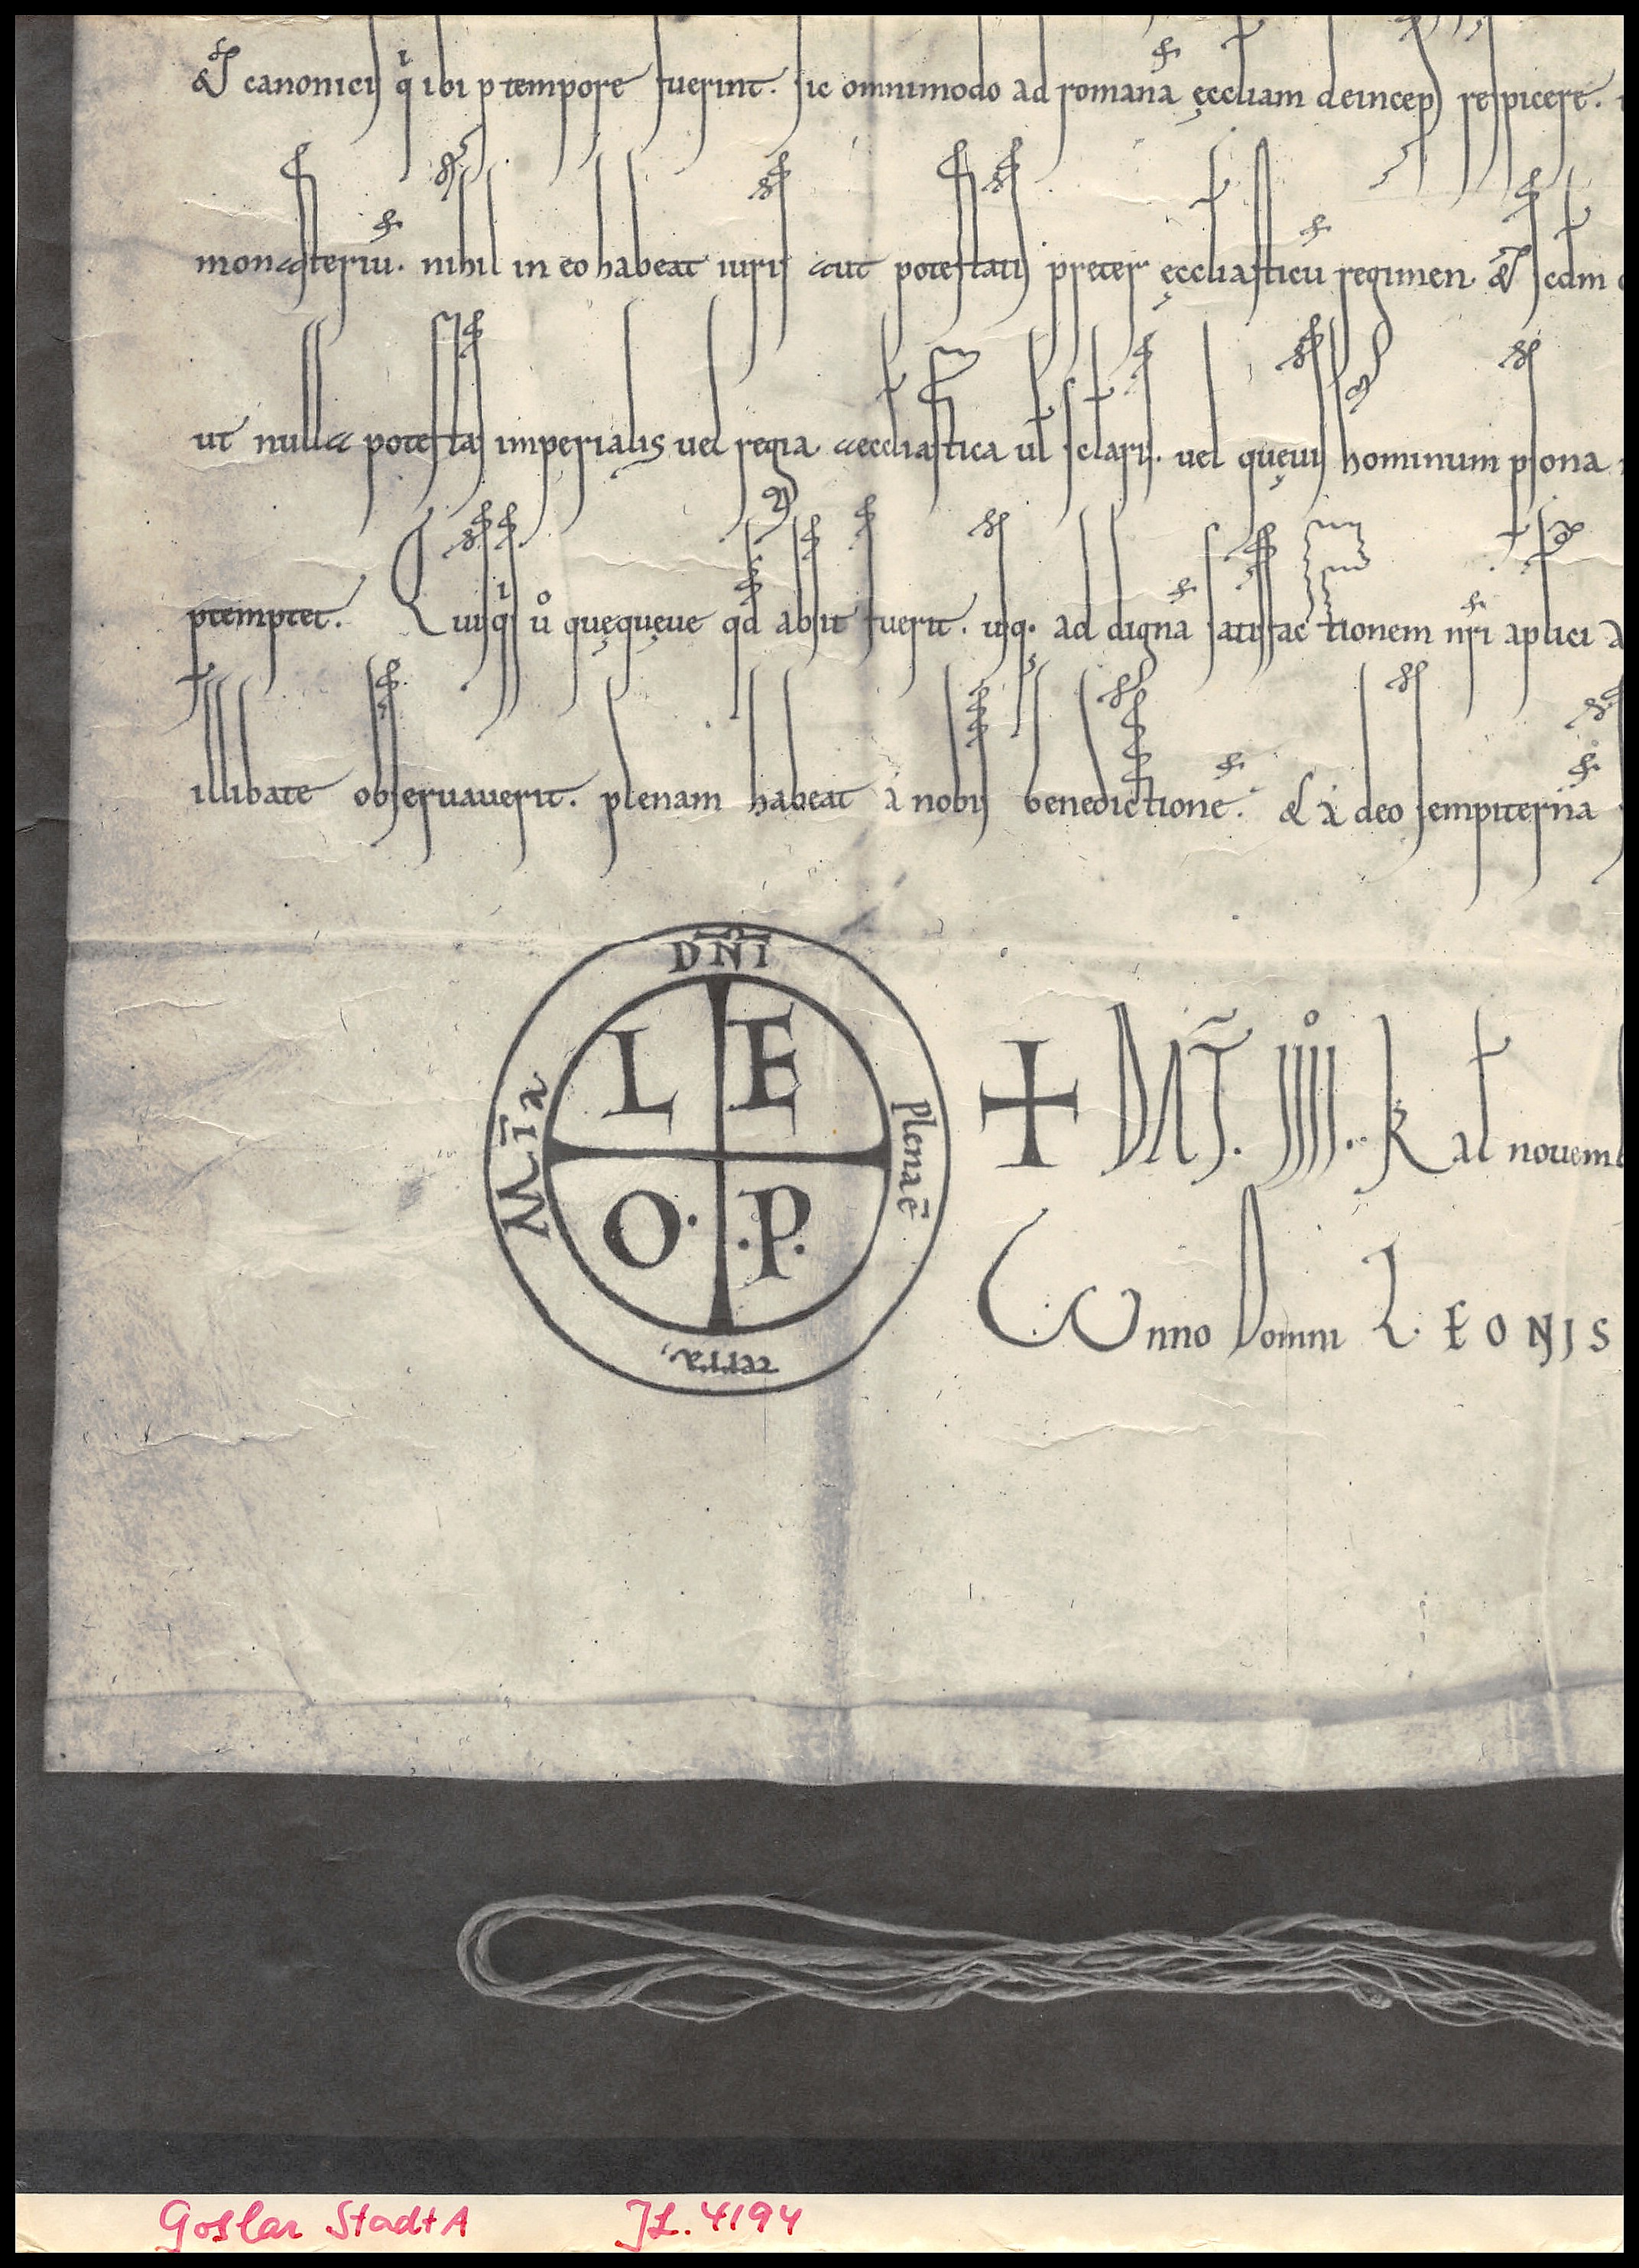 & canonicis qi ibi p tempore fuerint. sic omnimodo ad romana ęccliam deinceps respicere.
monasteriu. nihil in eo habeat iuris aut potestatis preter ęccliasticu regimen. & scdm
ut nulla potestas imperialis vel regia aeccliastica ul sclaris. vel quęvis hominum psona
ptemptet. Quisqis uo quęquęve qd absit fuerit. usq. ad digna satisfactionem nri aplici
illibate observaverit. plenam habeat a nobis benedictione. & a deo sempiterna
DNI
L E
Mia plenaē
O. .P.
terra,
+ DAT. IIII.o Kal novemb
Anno Domni LEONIS
Goslar StadtA JL. 4194